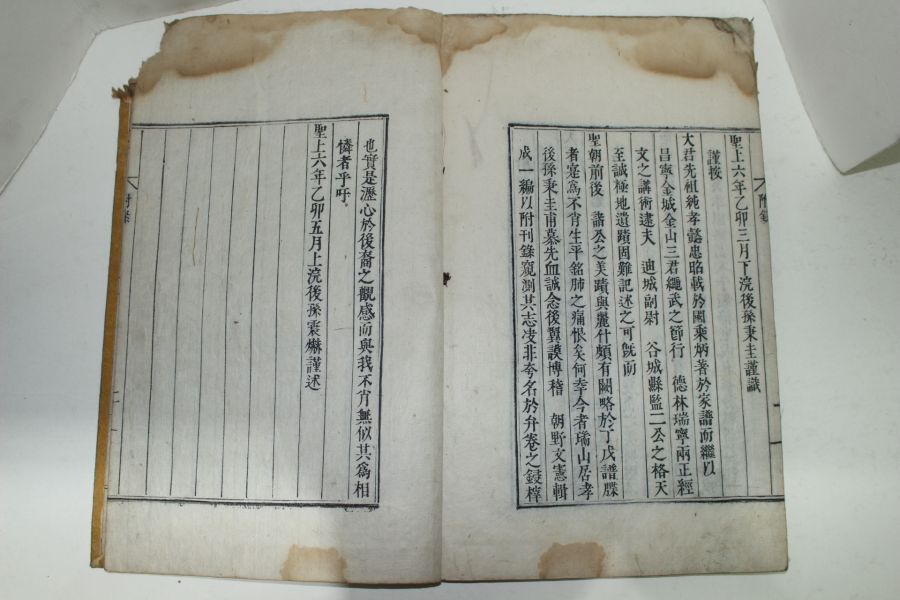 聖上六年乙卯三月下浣後孫秉圭謹識
謹按
大君先祖純孝懿忠昭載於國乘炳著於家譜而繼以
昌寧金城金山三君繩武之節行 德林瑞寧兩正經
文之講術逮夫 迪城副尉 谷城縣監二公之格天
至誠極地遺蹟固難記述之可旣而
聖朝前後 諸公之美蹟與麗什頗有闕略於丁戊譜牒
者寔爲不肖生平銘肺之痛恨矣何幸今者瑞山居孝
後孫秉圭甫慕先血誠念後翼謨博稽 朝野文憲輯
成一編以附刊錄窺測其志凌非夸名於弁卷之鋟梓
附錄
一
也實是瀝心於後裔之觀感而與我不肖無似其爲相
憐者乎吁
聖上六年乙卯五月上浣後孫震爀謹述
附錄
二